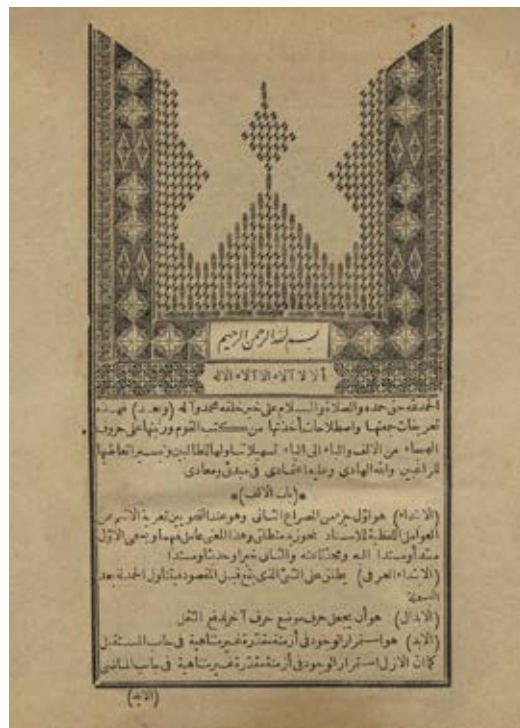 بسم الله الرحمن الرحيم
ألا لا آلاء الا آلاء الاله
الحمد لله حق حمده والصلاة والسلام على خير خلقه محمد وآله (وبعد) فهذه
تعريفات جمعتها واصطلاحات أخذتها من كتب القوم ورتبتها على حروف
الهجاء من الالف والباء الى الياء تسهيلا تناولها للطالبين وتيسيرا تعاطيها
للراغبين والله الهادى وعليه اعتمادى فى مبدئى ومعادى
*(باب الالف)*
(الابتداء) هو أول جزء من المصراع الثانى وهو عند النحويين تعرية الاسم عن
العوامل اللفظية للاسناد نحو زيد منطلق وهذا المعنى عامل فيهما ويسمى الاول
مبتدأ ومسندا اليه ومحدثا عنه والثانى خبرا وحديثا ومسندا
(الابتداء العرفى) يطلق على الشئ الذى يقع قبل المقصود فيتناول الحمدلة بعد
البسملة
(الابدال) هو أن يجعل حرف موضع حرف آخر لدفع الثقل
(الابد) هو استمرار الوجود فى أزمنة مقدرة غير متناهية فى جانب المستقبل
كما ان الازل استمرار الوجود فى أزمنة مقدرة غير متناهية فى جانب الماضى
(الابد)